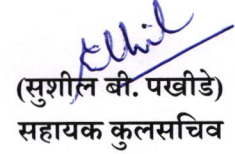 (सुशील बी. पखीडे)
सहायक कुलसचिव